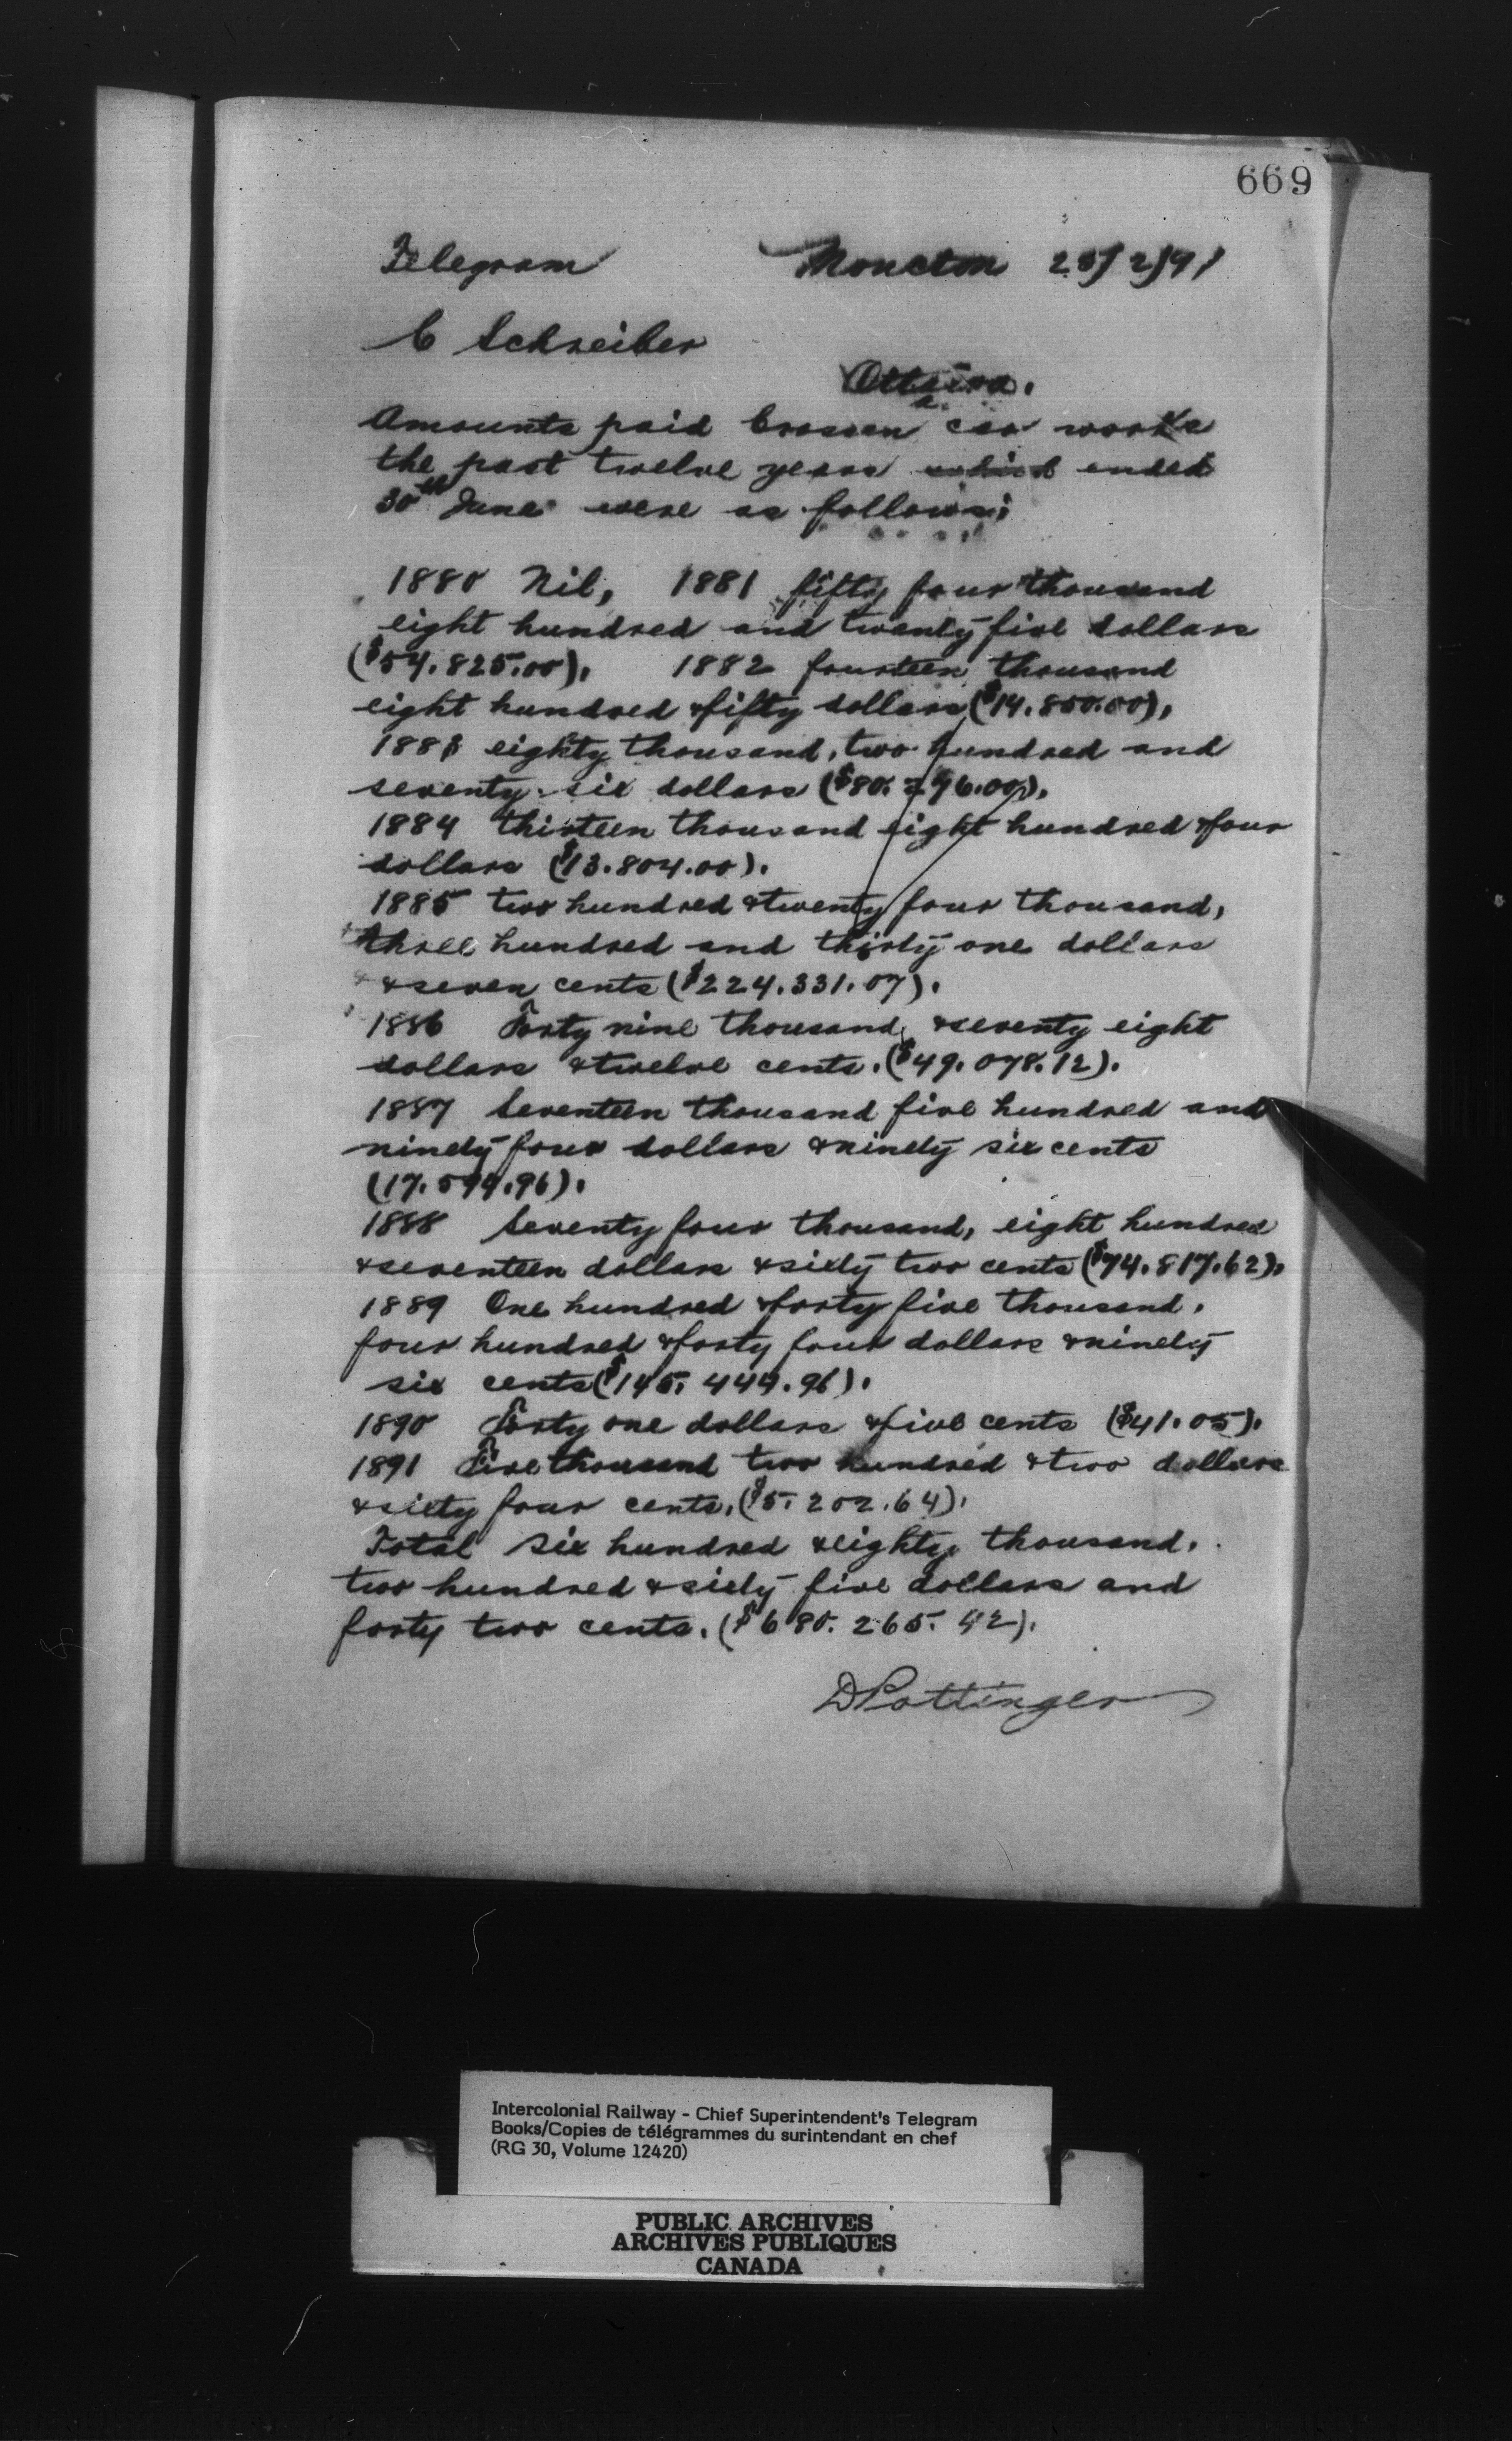 669
Telegram Moncton 28/2/91
C Schreiber
Ottawa.
Amounts paid Crossen car works
the past twelve years which ended
30th June were as follows;
1880 Nil, 1881 fifty four thousand
eight hundred and twenty five dollars
($54.825.00). 1882 fourteen thousand
eight hundred & fifty dollars ($14.850.00),
1883 eighty thousand, two hundred and
seventy six dollars ($80.276.00).
1884 thirteen thousand eight hundred & four
dollars ($13.804.00).
1885 two hundred & twenty four thousand,
three hundred and thirty one dollars
& seven cents ($224.331.07).
1886 Forty nine thousand, & seventy eight
dollars & twelve cents. ($49.078.12).
1887 Seventeen thousand five hundred and
ninety four dollars & ninety six cents
(17.594.96).
1888 Seventy four thousand, eight hundred
& seventeen dollars & sixty two cents ($74.817.62).
1889 One hundred & forty five thousand.
four hundred & forty four dollars & ninety
six cents ($145.444.96).
1890 Forty one dollars & five cents ($41.05).
1891 Five thousand two hundred & two dollars
& sixty four cents. ($5.202.64).
Total Six hundred & eighty thousand.
two hundred & sixty five dollars and
forty two cents. ($680.265.42).
D Pottinger
Intercolonial Railway - Chief Superintendent's Telegram
Books/Copies de télégrammes du surintendant en chef
(RG 30, Volume 12420)
PUBLIC ARCHIVES
ARCHIVES PUBLIQUES
CANADA